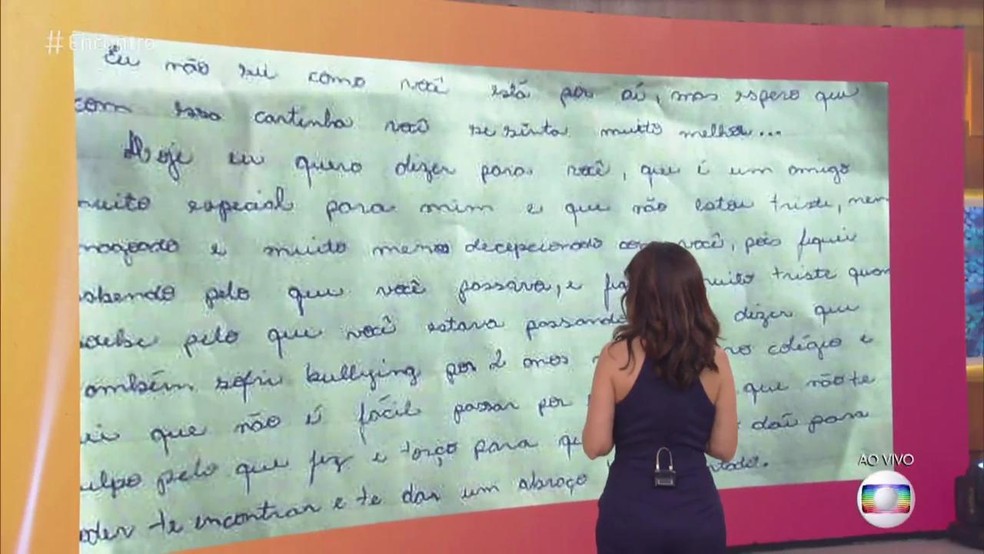 #Encontro
Eu não sei como você está por aí, mas espero que
com essa cartinha você se sinta muito melhor...
Hoje eu quero dizer para você, que é um amigo
muito especial para mim e que não estou triste, nem
magoado e muito menos decepcionado com você, pois fiquei
sabendo pelo que você passava, e muito triste quan
soube pelo que você estava passando dizer que
também sofri bullying por 2 anos no colégio e
sei que não é fácil passar por que não te
culpo pelo que fez e torço para que daí para
poder te encontrar e te dar um abraço
AO VIVO